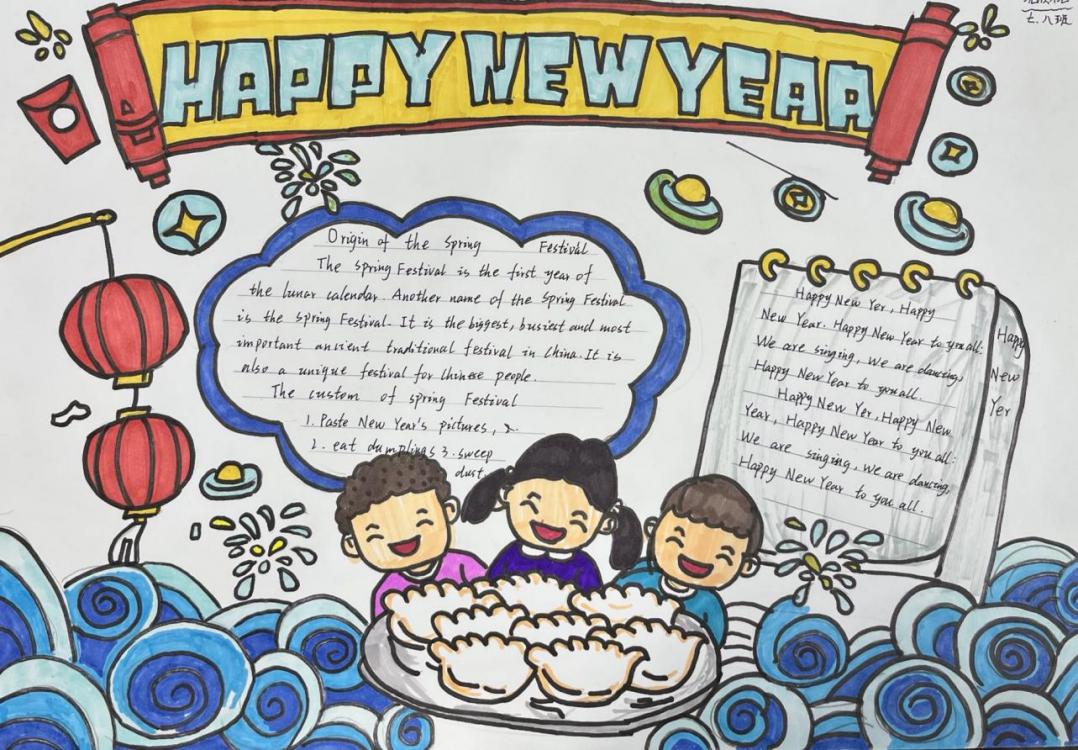 七.八班
HAPPY NEW YEAR
Origin of the Spring Festival
The Spring Festival is the first year of
the lunar calendar. Another name of the Spring Festival
is the Spring Festival. It is the biggest, busiest and most
important ancient traditional festival in China. It is
also a unique festival for Chinese people.
The custom of spring Festival
1. Paste New Year's pictures, 2.
2. eat dumplings 3. sweep
dust
Happy New Yer, Happy
New Year. Happy New Year to you all:
We are singing, we are dancing,
Happy New Year to you all.
Happy New Yer, Happy New
Year, Happy New Year to you all:
We are singing, we are dancing,
Happy New Year to you all.
Happy
New
Yer